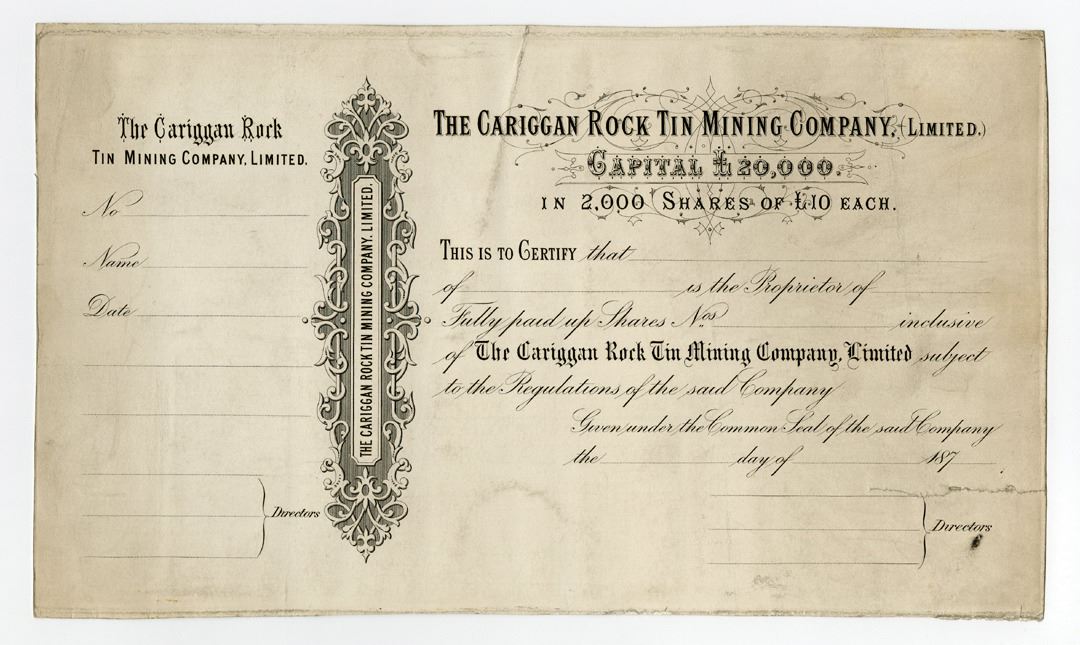 The Cariggan Rock
TIN MINING COMPANY, LIMITED.
No
Name
Date
Directors
THE CARIGGAN ROCK TIN MINING COMPANY. LIMITED.
THE CARIGGAN ROCK TIN MINING COMPANY, (LIMITED.)
CAPITAL £20,000.
IN 2,000 SHARES OF £10 EACH.
THIS IS TO CERTIFY that
of is the Proprietor of
Fully paid up Shares Nos. inclusive
of The Cariggan Rock Tin Mining Company, Limited subject
to the Regulations of the said Company
Given under the Common Seal of the said Company
the day of 187
Directors